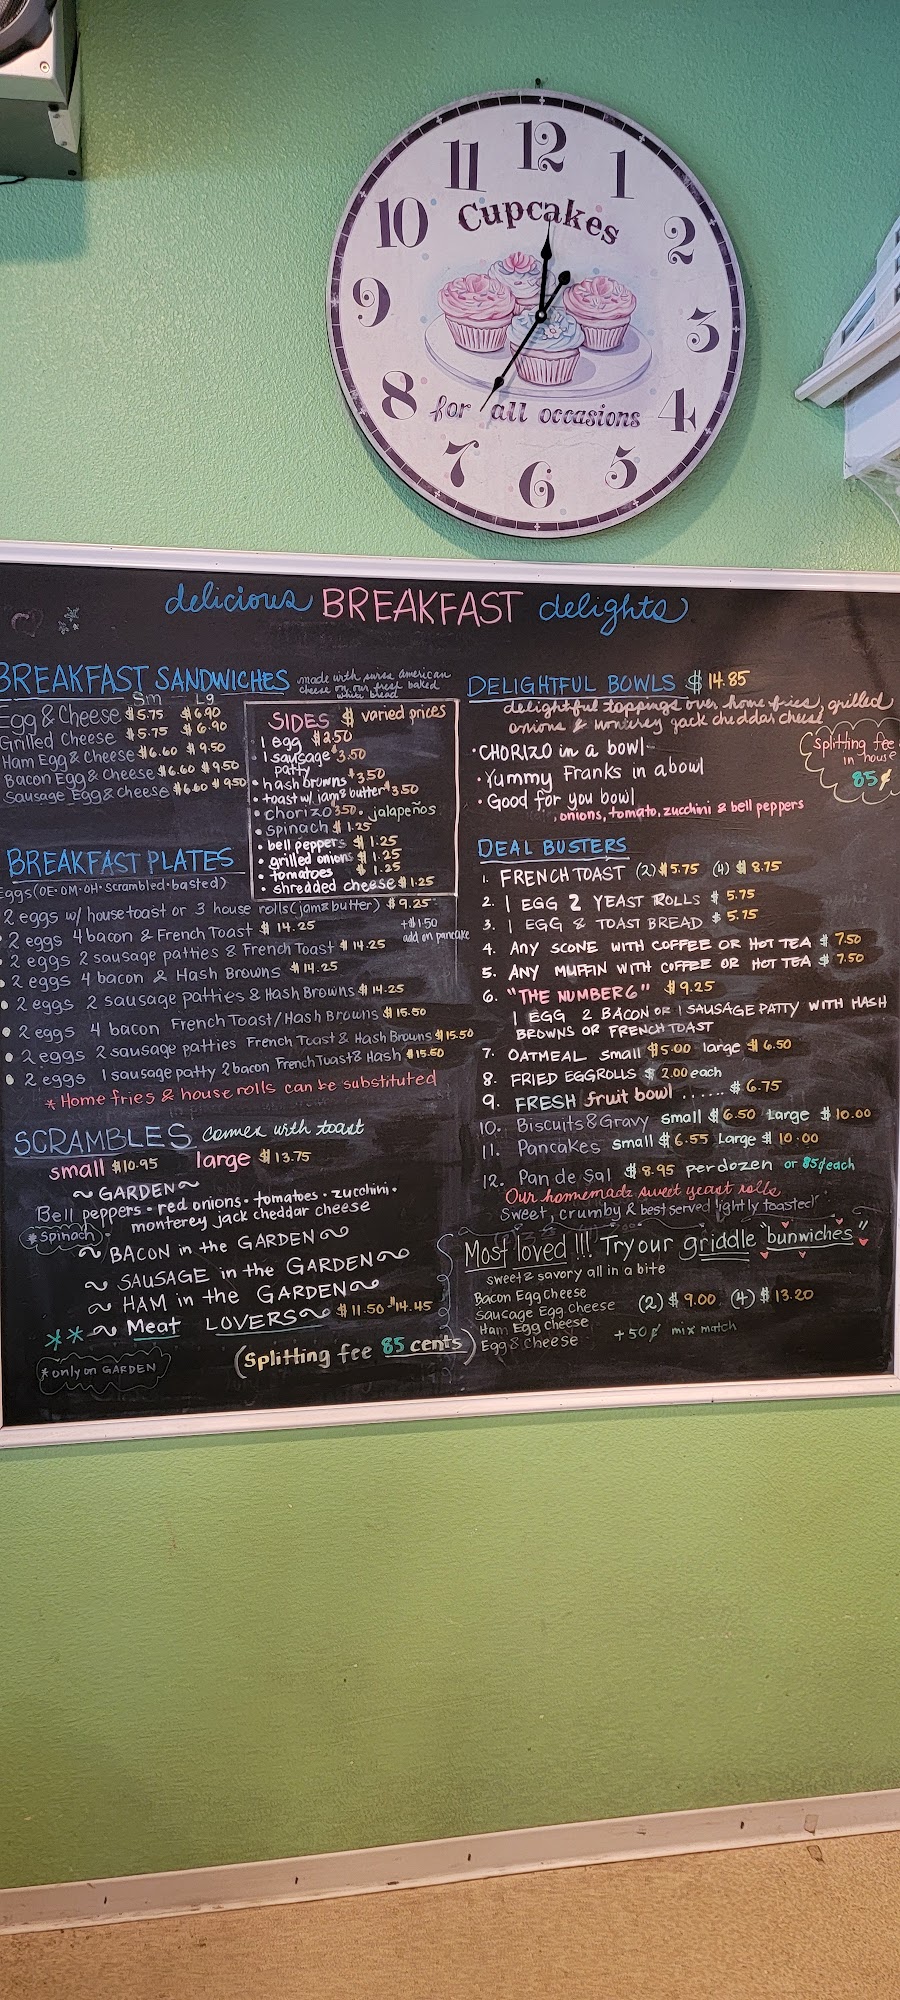 12
11
1
10
2
9
3
8
4
7
5
6
Cupcakes
for all occasions
delicious BREAKFAST delights
BREAKFAST SANDWICHES made with swiss american
cheese on our fresh baked
white bread
Sm Lg
Egg & Cheese $5.75 $6.90
Grilled Cheese $5.75 $6.90
Ham Egg & Cheese $6.60 $9.50
Bacon Egg & Cheese $6.60 $9.50
Sausage Egg & Cheese $6.60 $9.50
SIDES $ varied prices
1 egg $2.50
1 sausage $3.50
patty
• hash browns $3.50
• toast w/ jam & butter $3.50
• chorizo 3.50 • jalapeños
• spinach $1.25
• bell peppers $1.25
• grilled onions $1.25
• tomatoes $1.25
• shredded cheese $1.25
BREAKFAST PLATES
Eggs (OE • OM • OH • Scrambled • basted)
2 eggs w/ house toast or 3 house rolls (jam & butter) $9.25
+$1.50
add on pancake
• 2 eggs 4 bacon & French Toast $14.25
• 2 eggs 2 sausage patties & French Toast $14.25
• 2 eggs 4 bacon & Hash Browns $14.25
• 2 eggs 2 sausage patties & Hash Browns $14.25
• 2 eggs 4 bacon French Toast/Hash Browns $15.50
• 2 eggs 2 sausage patties French Toast & Hash Browns $15.50
• 2 eggs 1 sausage patty 2 bacon French Toast & Hash $15.50
* Home fries & house rolls can be substituted
SCRAMBLES comes with toast
small $10.95 large $13.75
~ GARDEN ~
Bell peppers • red onions • tomatoes • zucchini •
monterey jack cheddar cheese
*Spinach
~ BACON in the GARDEN ~
~ SAUSAGE in the GARDEN ~
~ HAM in the GARDEN ~
** ~ Meat LOVERS ~ $11.50 - $14.45
* only on GARDEN
(Splitting fee 85 cents)
DELIGHTFUL BOWLS $14.85
delightful toppings over home fries, grilled
onions & monterey jack cheddar cheese
• CHORIZO in a bowl
• Yummy Franks in a bowl
• Good for you bowl
, onions, tomato, zucchini & bell peppers
Splitting fee
in house
85¢
DEAL BUSTERS
1. FRENCH TOAST (2) $5.75 (4) $8.75
2. 1 EGG 2 YEAST ROLLS $5.75
3. 1 EGG & TOAST BREAD $5.75
4. ANY SCONE WITH COFFEE OR HOT TEA $7.50
5. ANY MUFFIN WITH COFFEE OR HOT TEA $7.50
6. "THE NUMBER 6" $9.25
1 EGG 2 BACON OR 1 SAUSAGE PATTY WITH HASH
BROWNS OR FRENCH TOAST
7. OATMEAL small $5.00 large $6.50
8. FRIED EGGROLLS $2.00 each
9. FRESH fruit bowl ...... $6.75
10. Biscuits & Gravy small $6.50 Large $10.00
11. Pancakes small $6.55 Large $10.00
12. Pan de Sal $8.95 per dozen or 85¢/each
Our homemade sweet yeast rolls
Sweet, crumby & best served lightly toasted!
Most loved !!! Try our griddle "bunwiches"
sweet & savory all in a bite
Bacon Egg Cheese
Sausage Egg Cheese
Ham Egg Cheese
Egg & Cheese
(2) $9.00 (4) $13.20
+50¢ mix match